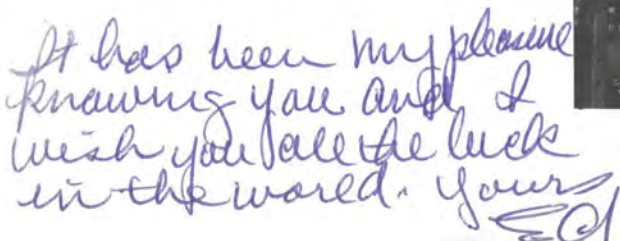 It has been my pleasure
knowing you and I
wish you all the luck
in the world. Yours
Ed